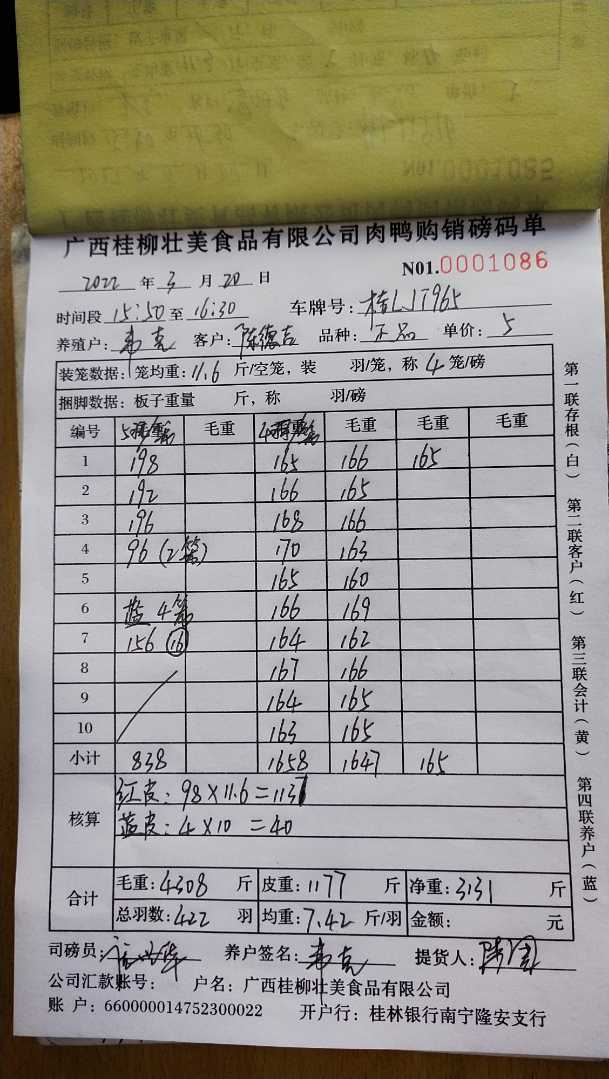 NO1.0001085
广西桂柳壮美食品有限公司肉鸭购销磅码单
2022 年 3 月 20 日 N01.0001086
时间段 15:50 至 16:30 车牌号: 桂LJT965
养殖户: 韦克 客户: 陈德吉 品种: 正品 单价: 5
装笼数据: 笼均重: 11.6 斤/空笼, 装 羽/笼, 称 4 笼/磅
捆脚数据: 板子重量 斤, 称 羽/磅
编号 毛重 毛重 毛重 毛重
1 198 165 166 165
2 192 166 165
3 196 168 166
4 96 (2笼) 170 163
5 165 160
6 蓝 4笼 166 169
7 156 16 164 162
8 167 166
9 164 165
10 163 165
小计 838 1658 1647 165
核算 红皮: 98×11.6=1137
蓝皮: 4×10 =40
合计 毛重: 4308 斤 皮重: 1177 斤 净重: 3131 斤
总羽数: 422 羽 均重: 7.42 斤/羽 金额: 元
司磅员: 养户签名: 韦克 提货人:
公司汇款账号: 户名: 广西桂柳壮美食品有限公司
账 户: 660000014752300022 开户行: 桂林银行南宁隆安支行
第一联存根(白) 第二联客户(红) 第三联会计(黄) 第四联养户(蓝)